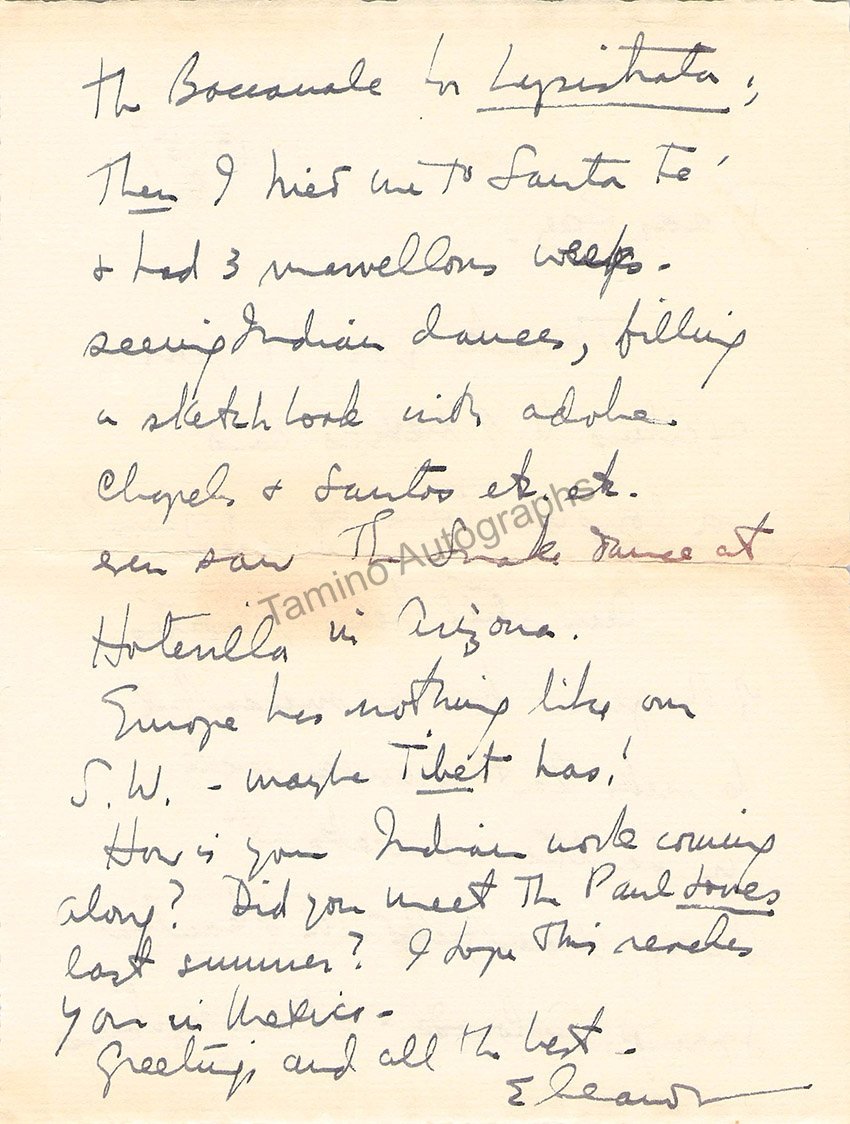 the Baccanale for Lysistrata;
Then I hied me to Santa Fe'
& had 3 marvellous weeks -
seeing Indian dances, filling
a sketch book with adobe
Chapels & Santos etc. etc.
even saw The Snake dance at
Hotevilla in Arizona.
Europe has nothing like our
S.W. - maybe Tibet has!
How is your Indian work coming
along? Did you meet The Paul
last summer? I hope This reaches
you in Mexico -
Greetings and all the best -
Eleanor
Tamino Autographs